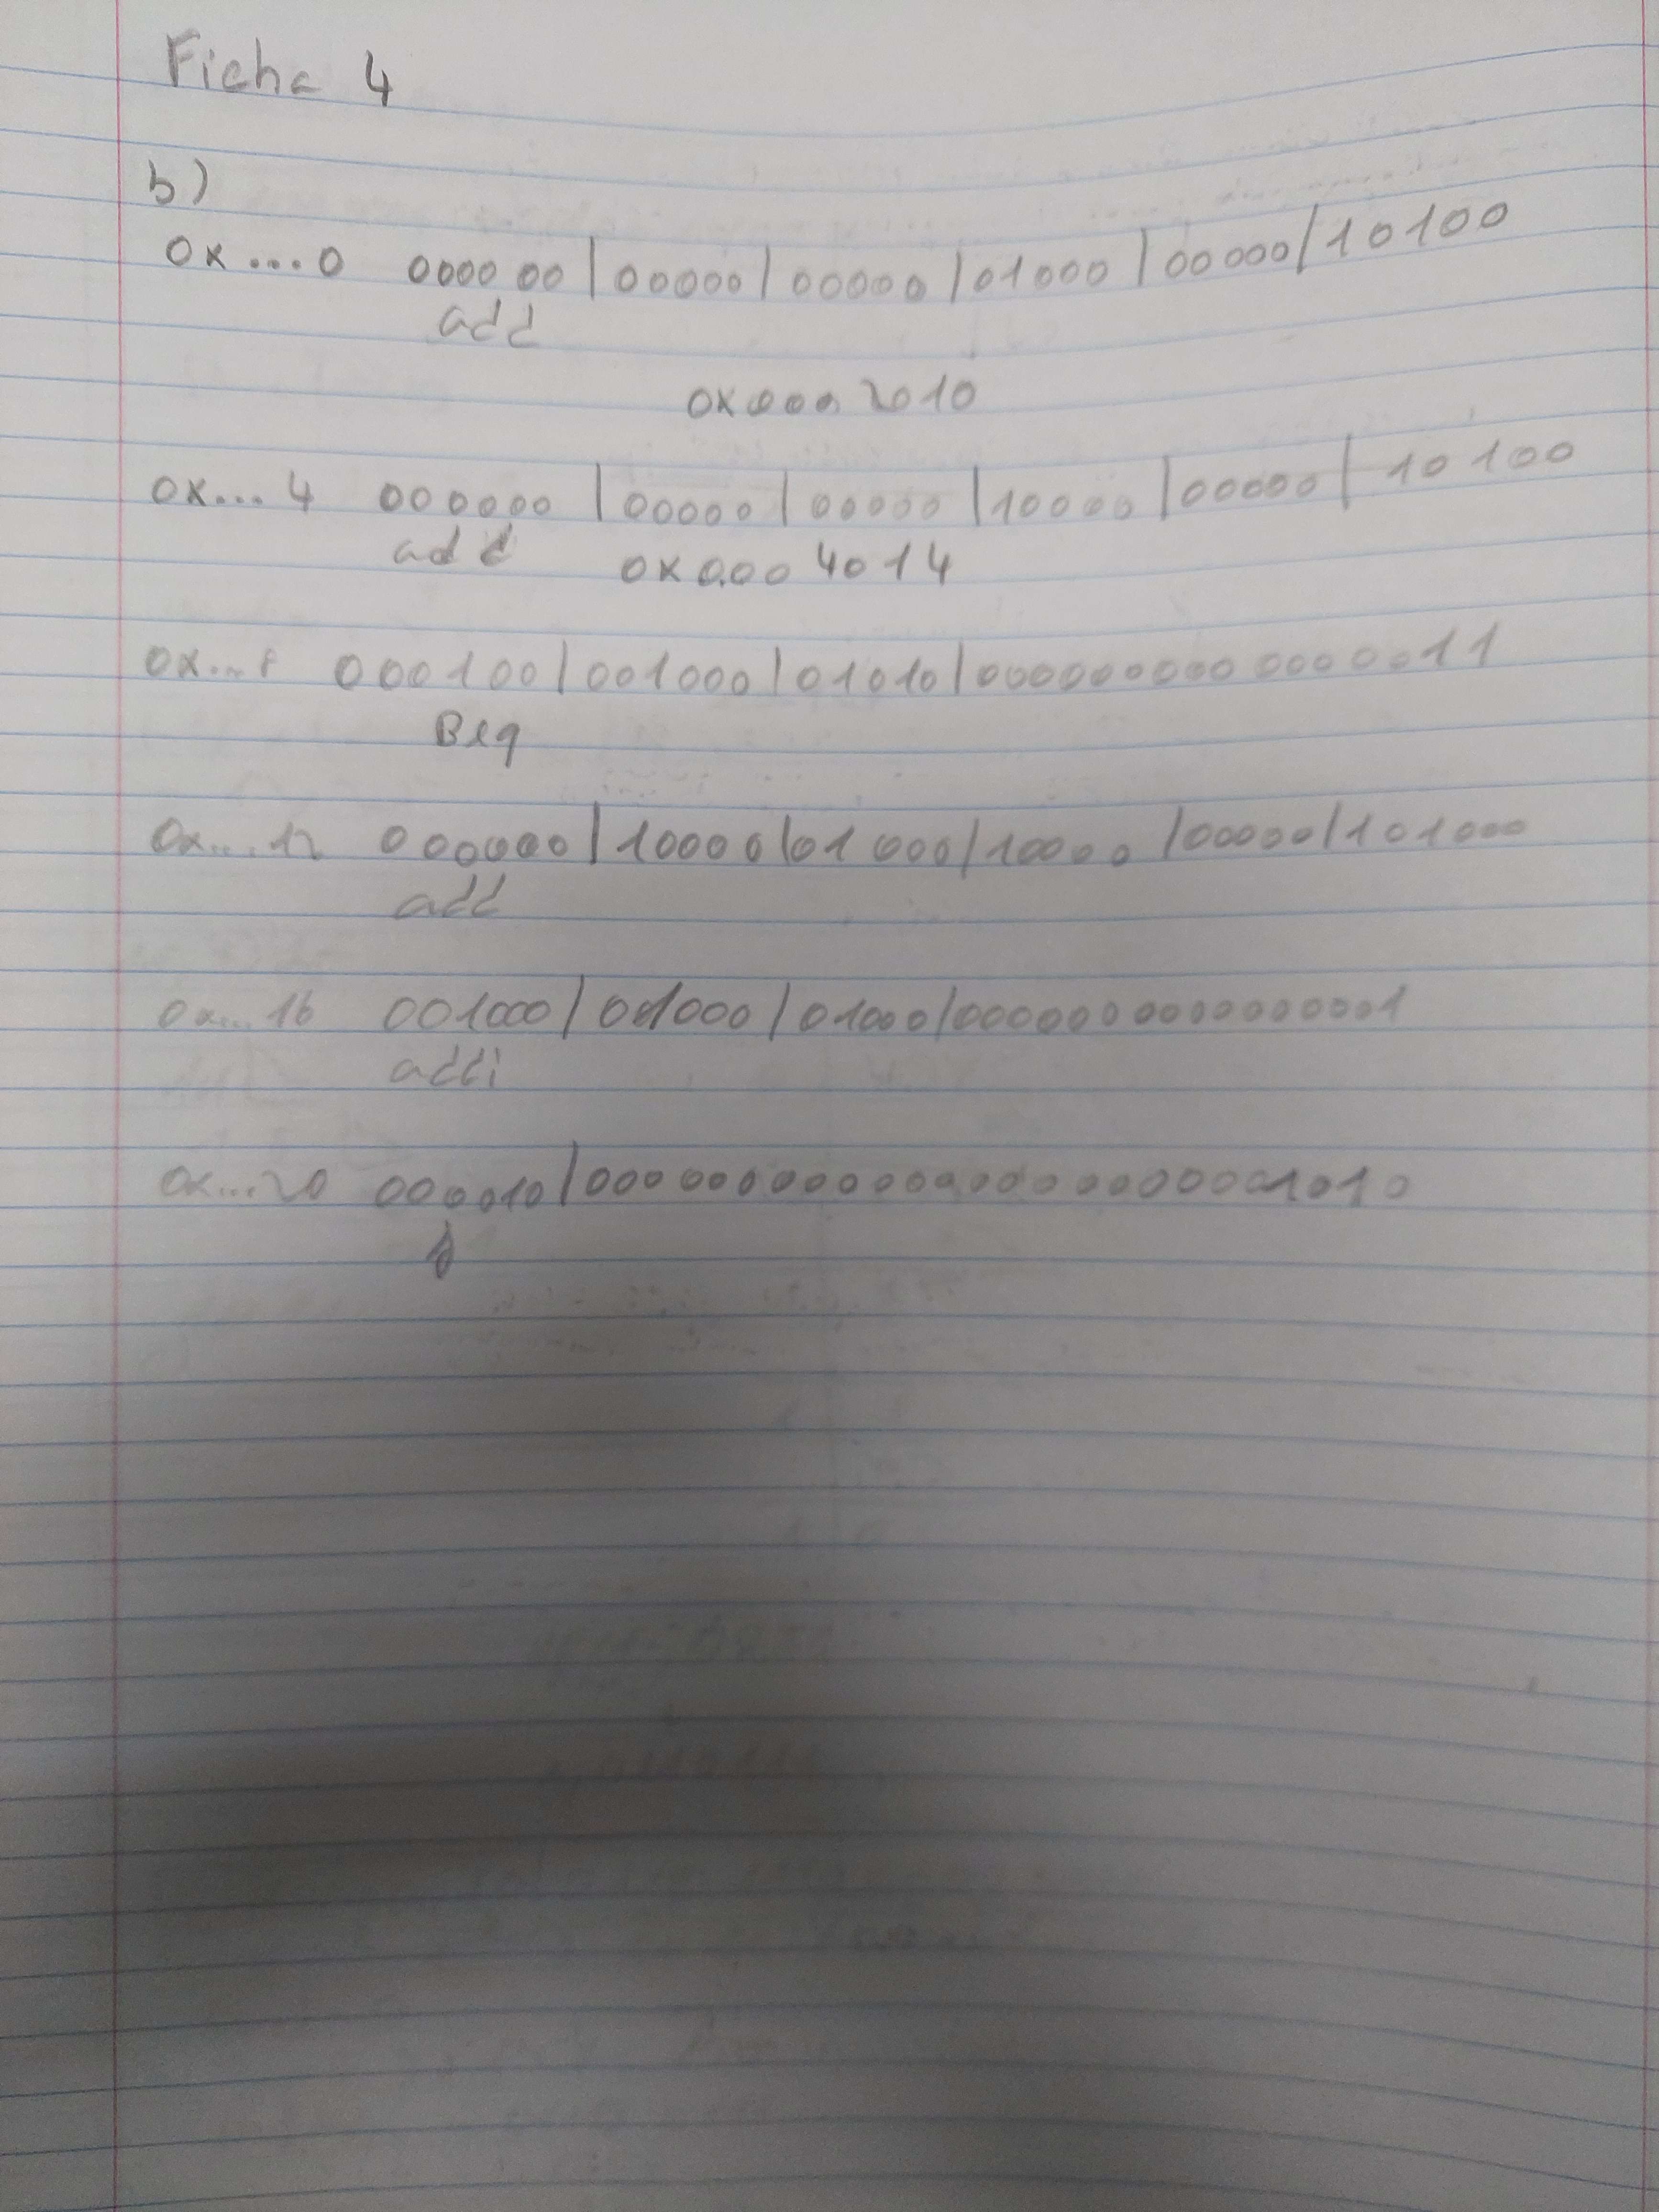 Ficha 4
b)
0x...0 000000|00000|00000|01000|00000|10100
add
0x0002010
0x...4 000000|00000|00000|10000|00000|10100
add 0x0004014
0x...8 000100|001000|01010|0000000000000011
Beq
0x...12 000000|10000|01000|10000|00000|101000
add
0x...16 001000|001000|01000|0000000000000001
addi
0x...20 000010|00000000000000000000001010
j